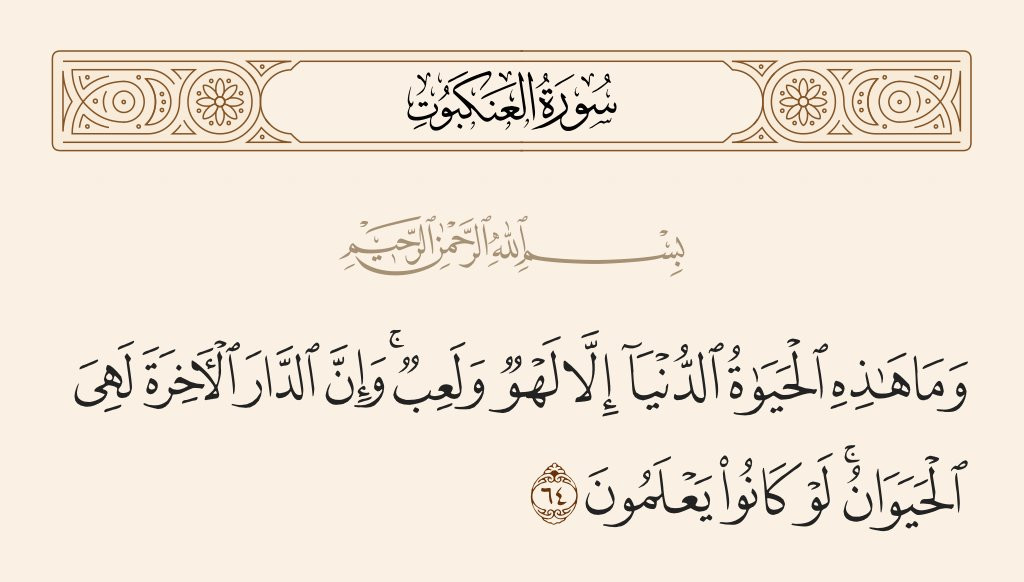 سُورَةُ العَنكَبُوتِ
بِسْمِ ٱللَّهِ ٱلرَّحْمَٰنِ ٱلرَّحِيمِ
وَمَا هَٰذِهِ ٱلْحَيَوٰةُ ٱلدُّنْيَآ إِلَّا لَهْوٌ وَلَعِبٌ ۚ وَإِنَّ ٱلدَّارَ ٱلْأَخِرَةَ لَهِىَ
ٱلْحَيَوَانُ ۚ لَوْ كَانُوا۟ يَعْلَمُونَ ٦٤